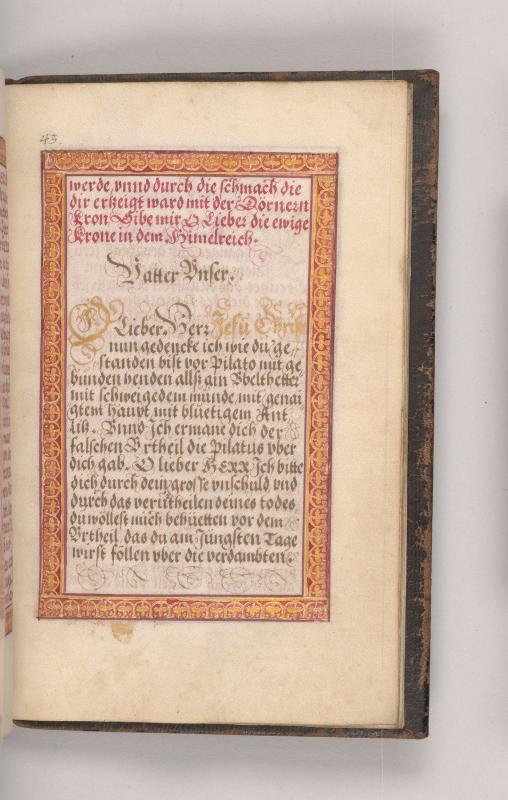 43.
werde, vnnd durch die schmach die
dir erzeigt ward mit der Dörnern
Kron Gibe mir O Lieber die ewige
Krone in dem Himelreich.
Vatter Vnser.
O Lieber Herr Jesu Christe
nun gedencke ich wie du ge
standen bist vor Pilato mit ge
bunden henden allß ain
mit schweigedem munde, mit genai
gtem haupt, mit blüetigem Ant
liß. Vnnd Ich ermane dich der
falschen Vrtheil die Pilatus vber
dich gab. O lieber HERR Ich bitte
dich durch dein grosse vnschuld vnd
durch das verurtheilen deines todes
du wöllest mich behüetten vor dem
Vrtheil das du am Jüngsten Tage
wirst föllen vber die verdambten.